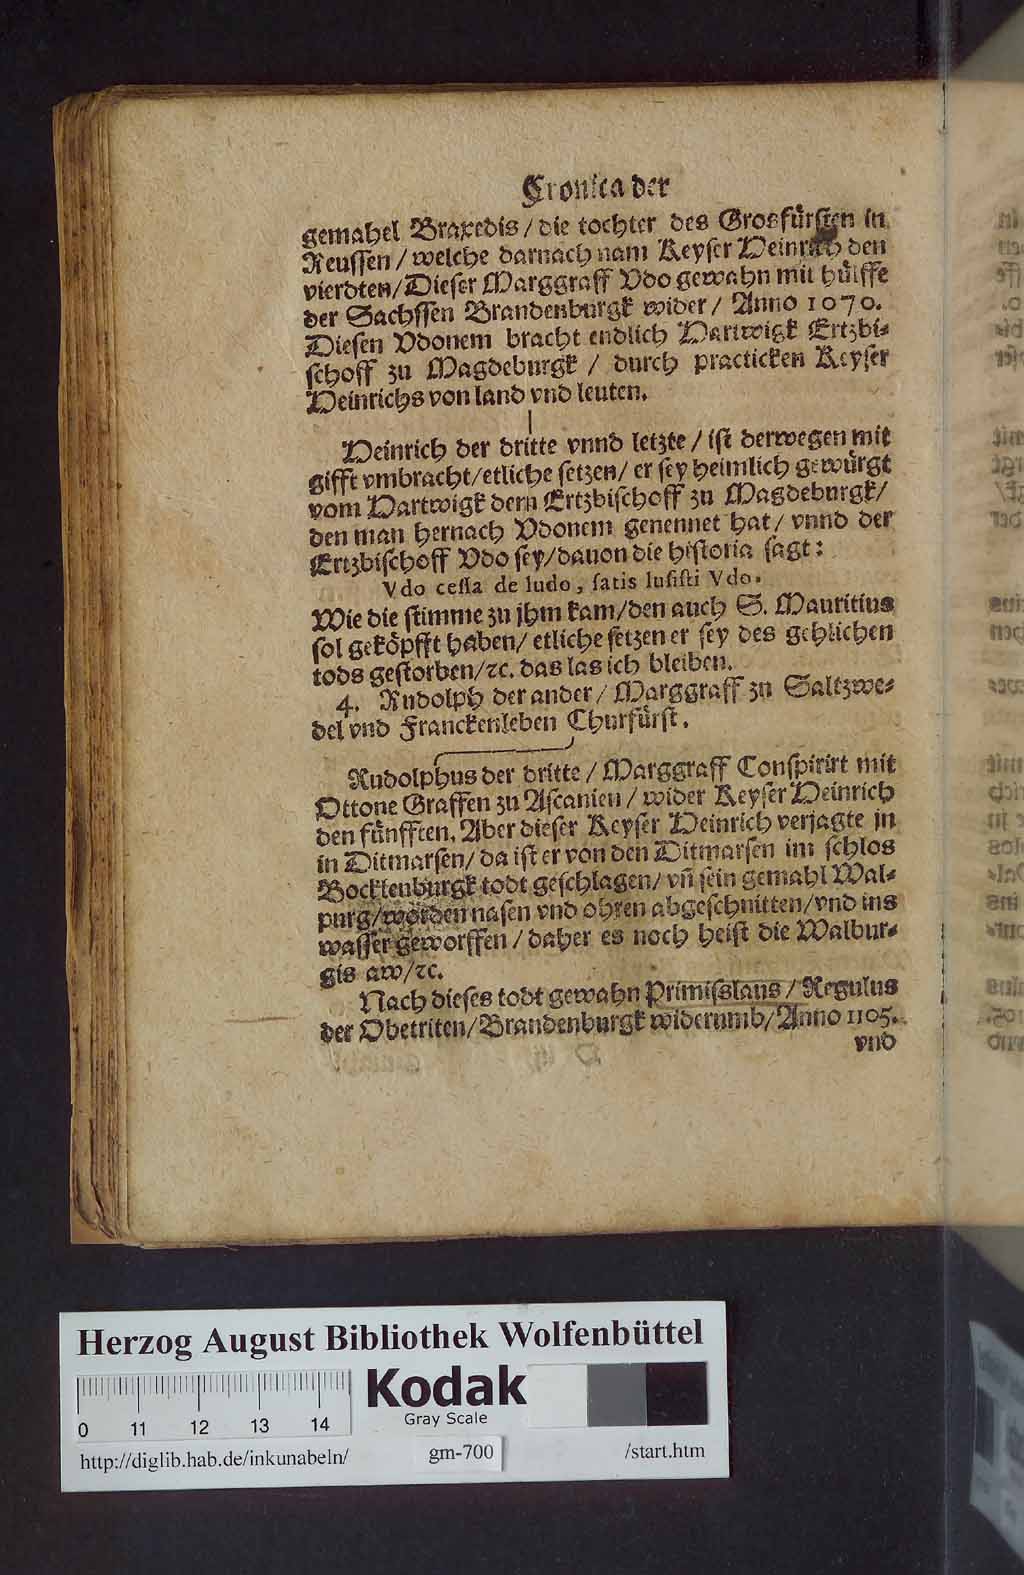 Cronica der
gemahel Braxedis / die tochter des Grosfürsten in
Reussen / welche darnach nam Keyser Heinrich den
vierdten / Dieser Marggraff Vdo gewahn mit hülffe
der Sachssen Brandenburgk wider / Anno 1070.
Diesen Vdonem bracht endlich Hartwigk Ertzbi-
schoff zu Magdeburgk / durch practicken Keyser
Heinrichs von land vnd leuten.
Heinrich der dritte vnnd letzte / ist derwegen mit
gifft vmbracht / etliche setzen / er sey heimlich gewürgt
vom Hartwigk dem Ertzbischoff zu Magdeburgk /
den man hernach Vdonem genennet hat / vnnd der
Ertzbischoff Vdo sey / dauon die historia sagt:
Vdo cessa de ludo, satis lusisti Vdo.
Wie die stimme zu jhm kam / den auch S. Mauritius
sol geköpfft haben / etliche setzen er sey des gehlichen
tods gestorben / ꝛc. das las ich bleiben.
4. Rudolph der ander / Marggraff zu Saltzwe-
del vnd Franckenleben Churfürst.
Rudolphus der dritte / Marggraff Conspirirt mit
Ottone Graffen zu Ascanien / wider Keyser Heinrich
den fünfften. Aber dieser Keyser Heinrich verjagte jn
in Ditmarsen / da ist er von den Ditmarsen im schlos
Bocklenburgk todt geschlagen / vñ sein gemahl Wal-
purg / worden nasen vnd ohren abgeschnitten / vnd ins
wasser geworffen / daher es noch heist die Walbur-
gis aw / ꝛc.
Nach dieses todt gewahn Primisslaus / Regulus
der Obetriten / Brandenburgk widerumb / Anno 1105.
vnd
Herzog August Bibliothek Wolfenbüttel
0 11 12 13 14
Kodak
Gray Scale
http://diglib.hab.de/inkunabeln/ gm-700 /start.htm